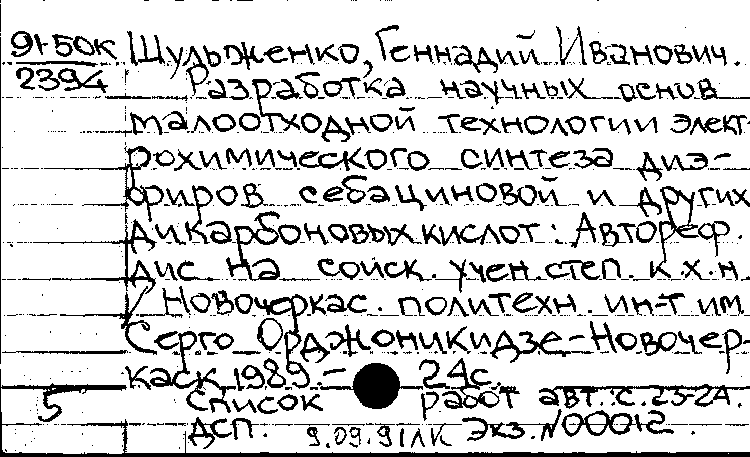 91-50К
2394
Шульженко, Геннадий Иванович.
Разработка научных основ
малоотходной технологии элект-
рохимического синтеза диэ-
фиров себациновой и других
дикарбоновых кислот : Автореф.
дис. на соиск. учен. степ. к.х.н.
/ Новочеркас. политехн. ин-т им
Серго Орджоникидзе-Новочер-
каск, 1989.- 24с.
Список работ авт.:с.23-24.
5
ДСП. 9.09.91ЛК Экз. N00012.